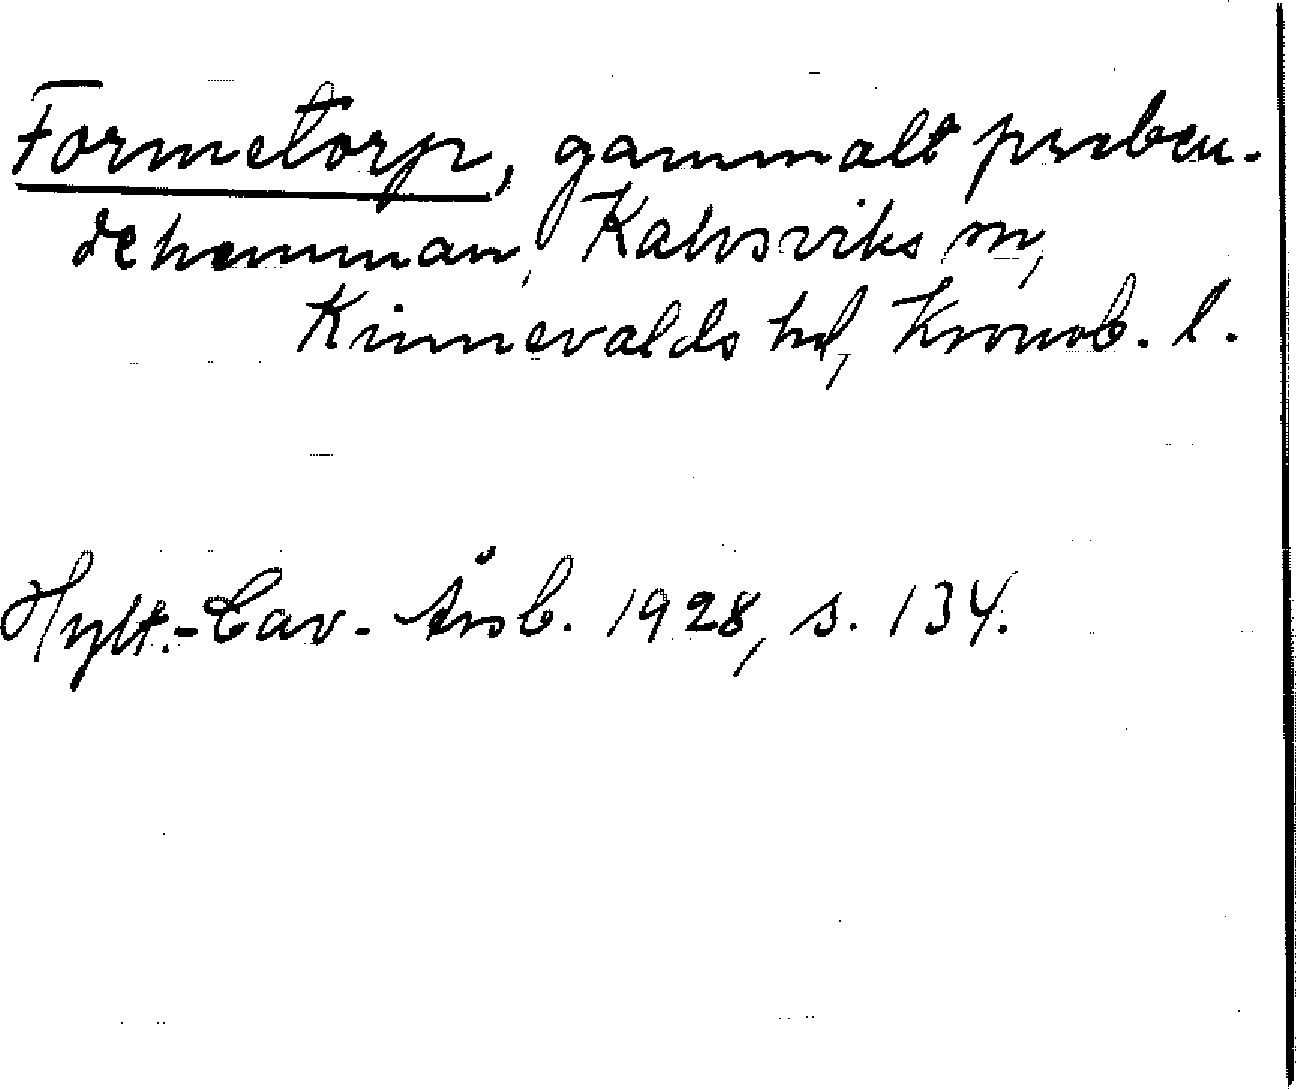 Formetorp, gammalt preben-
dehemman, Kalvsviks sn,
Kinnevalds hd, Kronob. l.
Hylt.-Cav.- Årsb. 1928, s. 134.